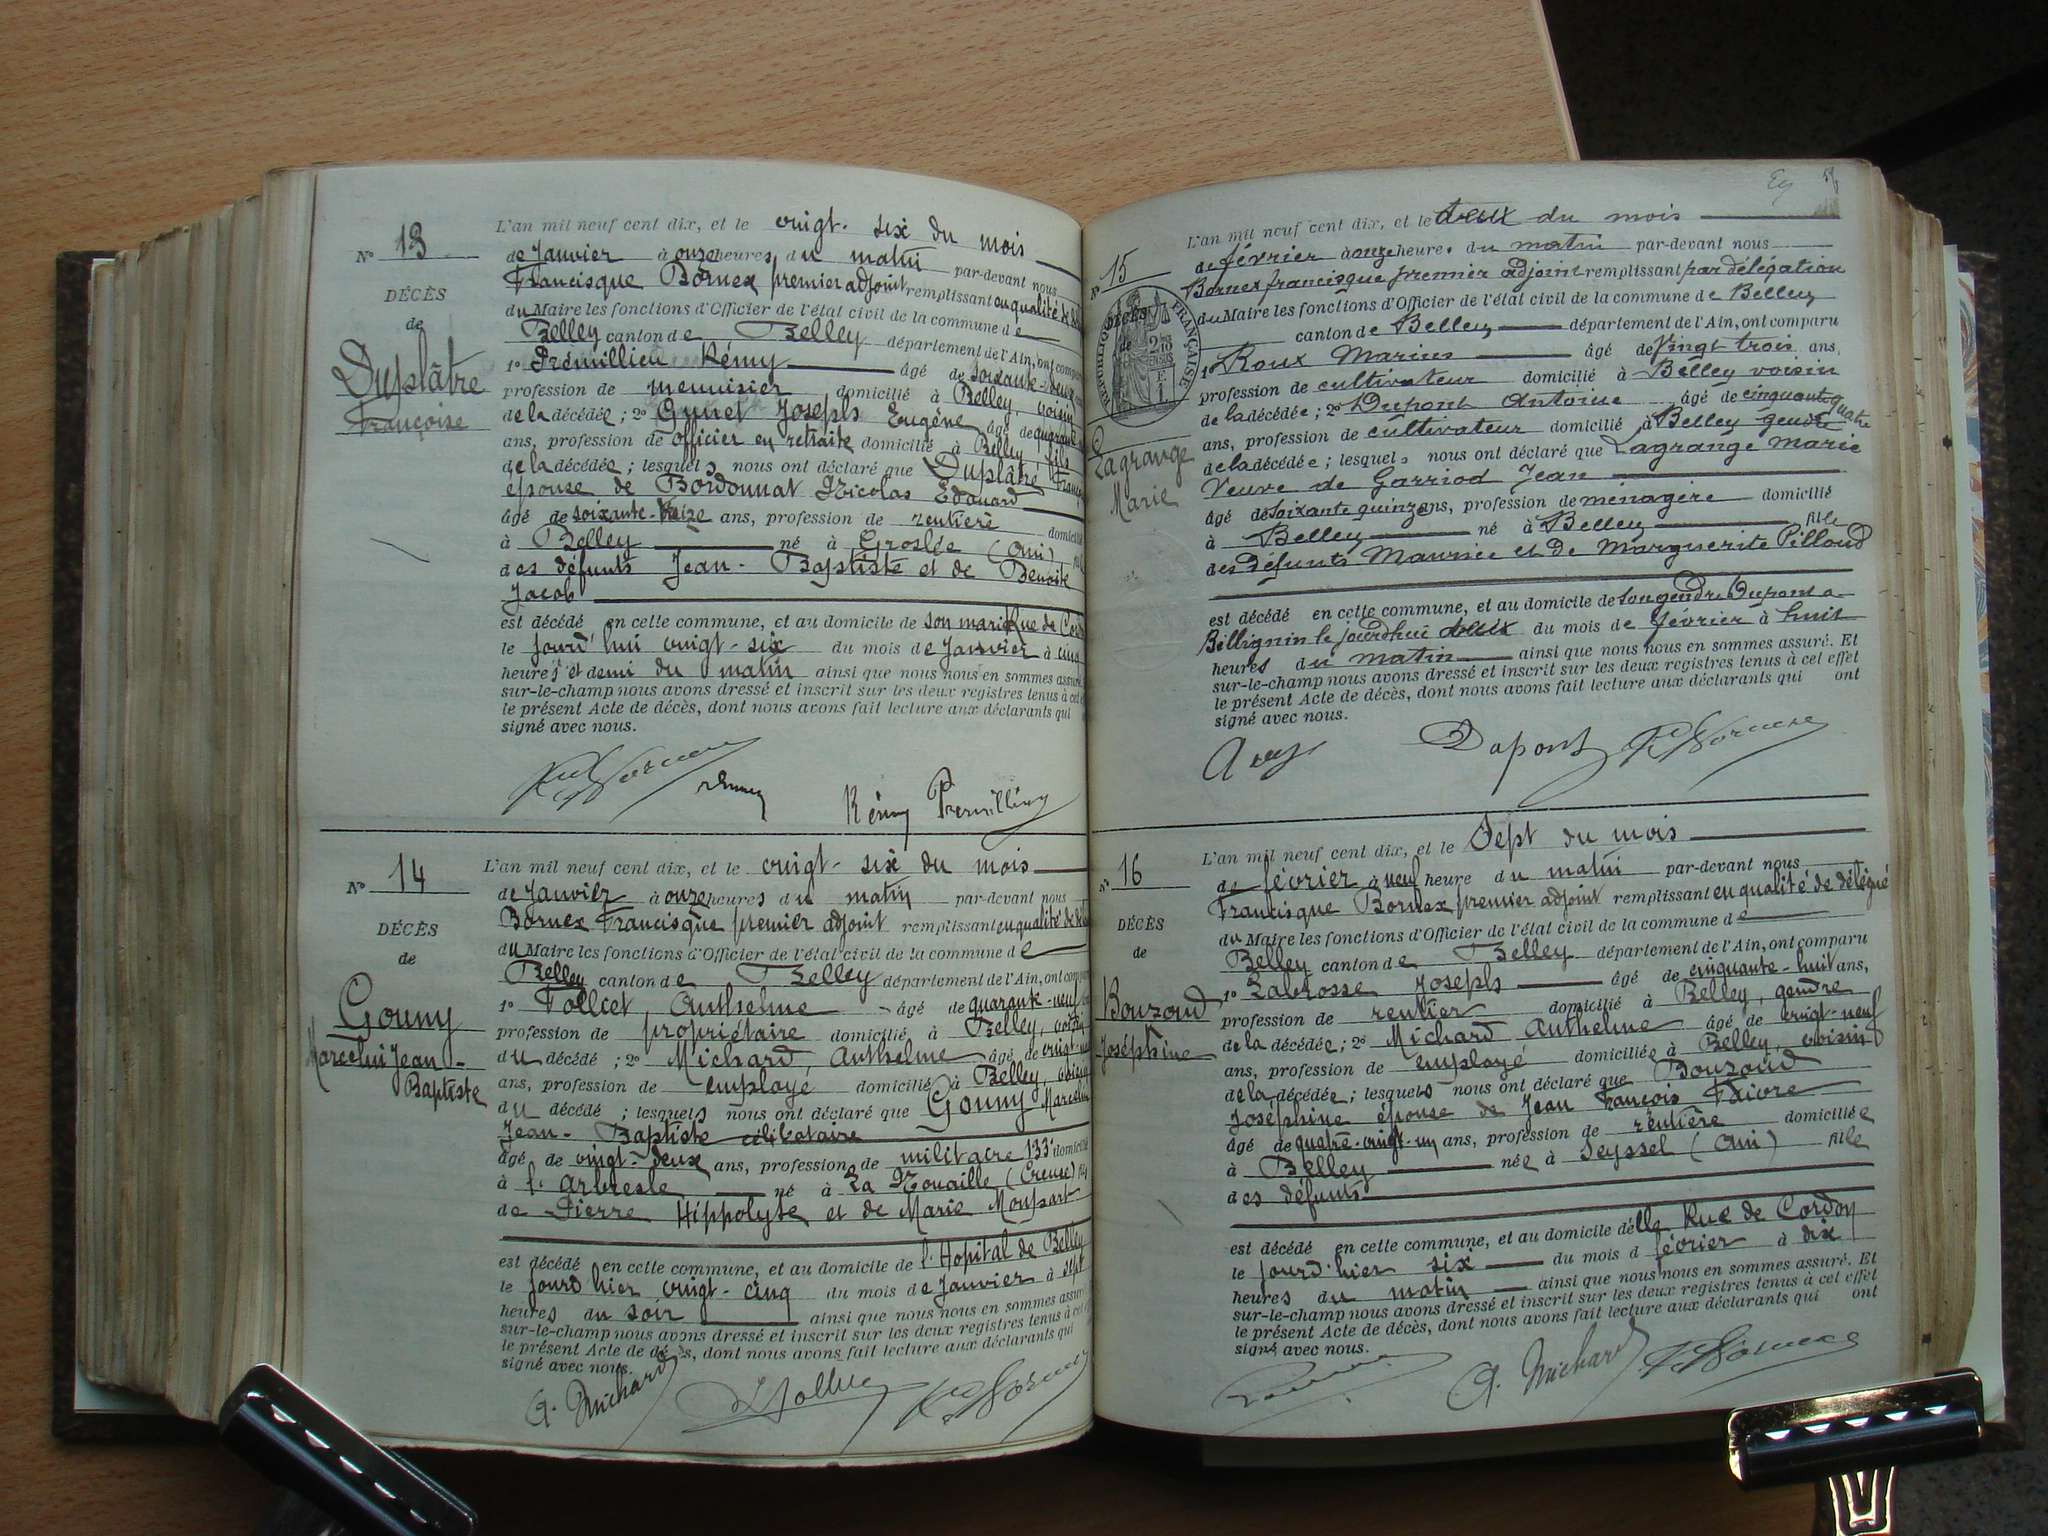 N° 13
DÉCÈS
de
Duplâtre
Françoise
L'an mil neuf cent dix, et le vingt-six du mois
de Janvier à onze heures du matin par-devant nous
Francisque Bornex premier adjoint remplissant en qualité de
du Maire les fonctions d'Officier de l'état civil de la commune de
Belley canton de Belley département de l'Ain, ont
1° Prémillieu Rémy âgé de soixante-
profession de menuisier domicilié à Belley, voisin
de la décédée; 2° Joseph Eugène âgé de
ans, profession de officier en retraite domicilié à Belley, fils
de la décédée; lesquels nous ont déclaré que Duplâtre
épouse de Bordonnat Nicolas Edouard
âgé de soixante-treize ans, profession de rentière
à Belley né à Groslée (Ain)
des défunts Jean-Baptiste et de Benoite
Jacob
est décédé en cette commune, et au domicile de son mari Rue de
le jourd'hui vingt-six du mois de Janvier à cinq
heures et demi du matin ainsi que nous nous en sommes assuré.
sur-le-champ nous avons dressé et inscrit sur les deux registres tenus à cet
le présent Acte de décès, dont nous avons fait lecture aux déclarants qui
signé avec nous.
Rémy Premillieu
N° 14
DÉCÈS
de
Gouny
Marcelin Jean-
Baptiste
L'an mil neuf cent dix, et le vingt-six du mois
de Janvier à onze heures du matin par-devant nous
Bornex Francisque premier adjoint remplissant en qualité de
du Maire les fonctions d'Officier de l'état civil de la commune de
Belley canton de Belley département de l'Ain, ont
1° Tollet Anthelme âgé de quarante-neuf
profession de propriétaire domicilié à Belley, voisin
du décédé; 2° Michard, Anthelme âgé de vingt-
ans, profession de employé domicilié à Belley,
du décédé; lesquels nous ont déclaré que Gouny
Jean-Baptiste célibataire
âgé de vingt-deux ans, profession de militaire 133e
à l'Arbresle né à La Nouaille (Creuse)
de Pierre Hippolyte et de Marie
est décédé en cette commune, et au domicile de l'Hopital de Belley
le jourd'hier vingt-cinq du mois de Janvier à sept
heures du soir ainsi que nous nous en sommes
sur-le-champ nous avons dressé et inscrit sur les deux registres tenus à
le présent Acte de décès, dont nous avons fait lecture aux déclarants qui
signé avec nous.
A. Michard
N° 15
DÉCÈS
de
RÉPUBLIQUE FRANÇAISE
Lagrange
Marie
L'an mil neuf cent dix, et le deux du mois
de février à onze heures du matin par-devant nous
Bornex francisque premier adjoint remplissant par délégation
du Maire les fonctions d'Officier de l'état civil de la commune de Belley
canton de Belley département de l'Ain, ont comparu
1° Roux Marius âgé de Vingt trois ans,
profession de cultivateur domicilié à Belley voisin
de la décédée; 2° Dupont Antoine âgé de cinquante quatre
ans, profession de cultivateur domicilié à Belley gendre
de la décédée; lesquels nous ont déclaré que Lagrange Marie
Veuve de Garriod Jean
âgé de soixante quinze ans, profession de ménagère domicilié
à Belley né à Belley fille
des défunts Maurice et de Marguerite Pilloud
est décédé en cette commune, et au domicile de son gendre Dupont a
Billignin le jourdhui deux du mois de février à huit
heures du matin ainsi que nous nous en sommes assuré. Et
sur-le-champ nous avons dressé et inscrit sur les deux registres tenus à cet effet
le présent Acte de décès, dont nous avons fait lecture aux déclarants qui ont
signé avec nous.
Dupont
N° 16
DÉCÈS
de
Bouzoud
Joséphine
L'an mil neuf cent dix, et le Sept du mois
de février à neuf heure du matin par-devant nous
Francisque Bornex premier adjoint remplissant en qualité de délégué
du Maire les fonctions d'Officier de l'état civil de la commune de
Belley canton de Belley département de l'Ain, ont comparu
1° Labrosse Joseph âgé de cinquante-huit ans,
profession de rentier domicilié à Belley, gendre
de la décédée; 2° Michard Anthelme âgé de vingt-neuf
ans, profession de employé domicilié à Belley, voisin
de la décédée; lesquels nous ont déclaré que Bouzoud
Joséphine épouse de Jean François Faivre
âgé de quatre-vingt-un ans, profession de rentière domiciliée
à Belley née à Seyssel (Ain) fille
des défunts
est décédé en cette commune, et au domicile d'elle Rue de Cordon
le jourd'hier six du mois d février à dix
heures du matin ainsi que nous nous en sommes assuré. Et
sur-le-champ nous avons dressé et inscrit sur les deux registres tenus à cet effet
le présent Acte de décès, dont nous avons fait lecture aux déclarants qui ont
signé avec nous.
A. Michard